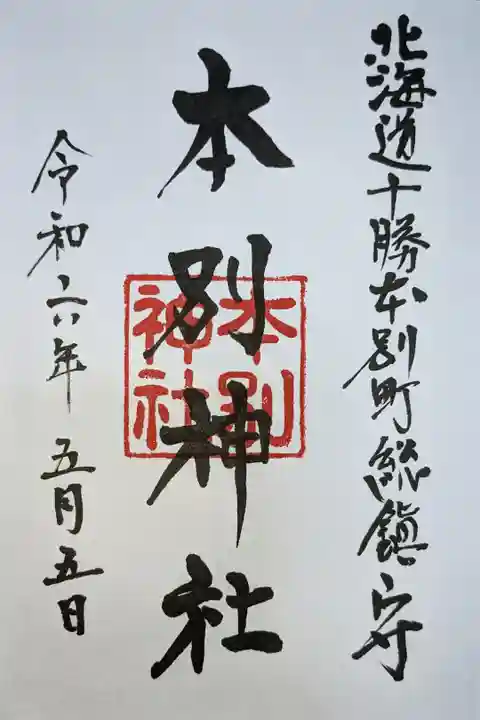 北海道十勝本別町総鎮守
本別神社
本別神社
令和六年五月五日